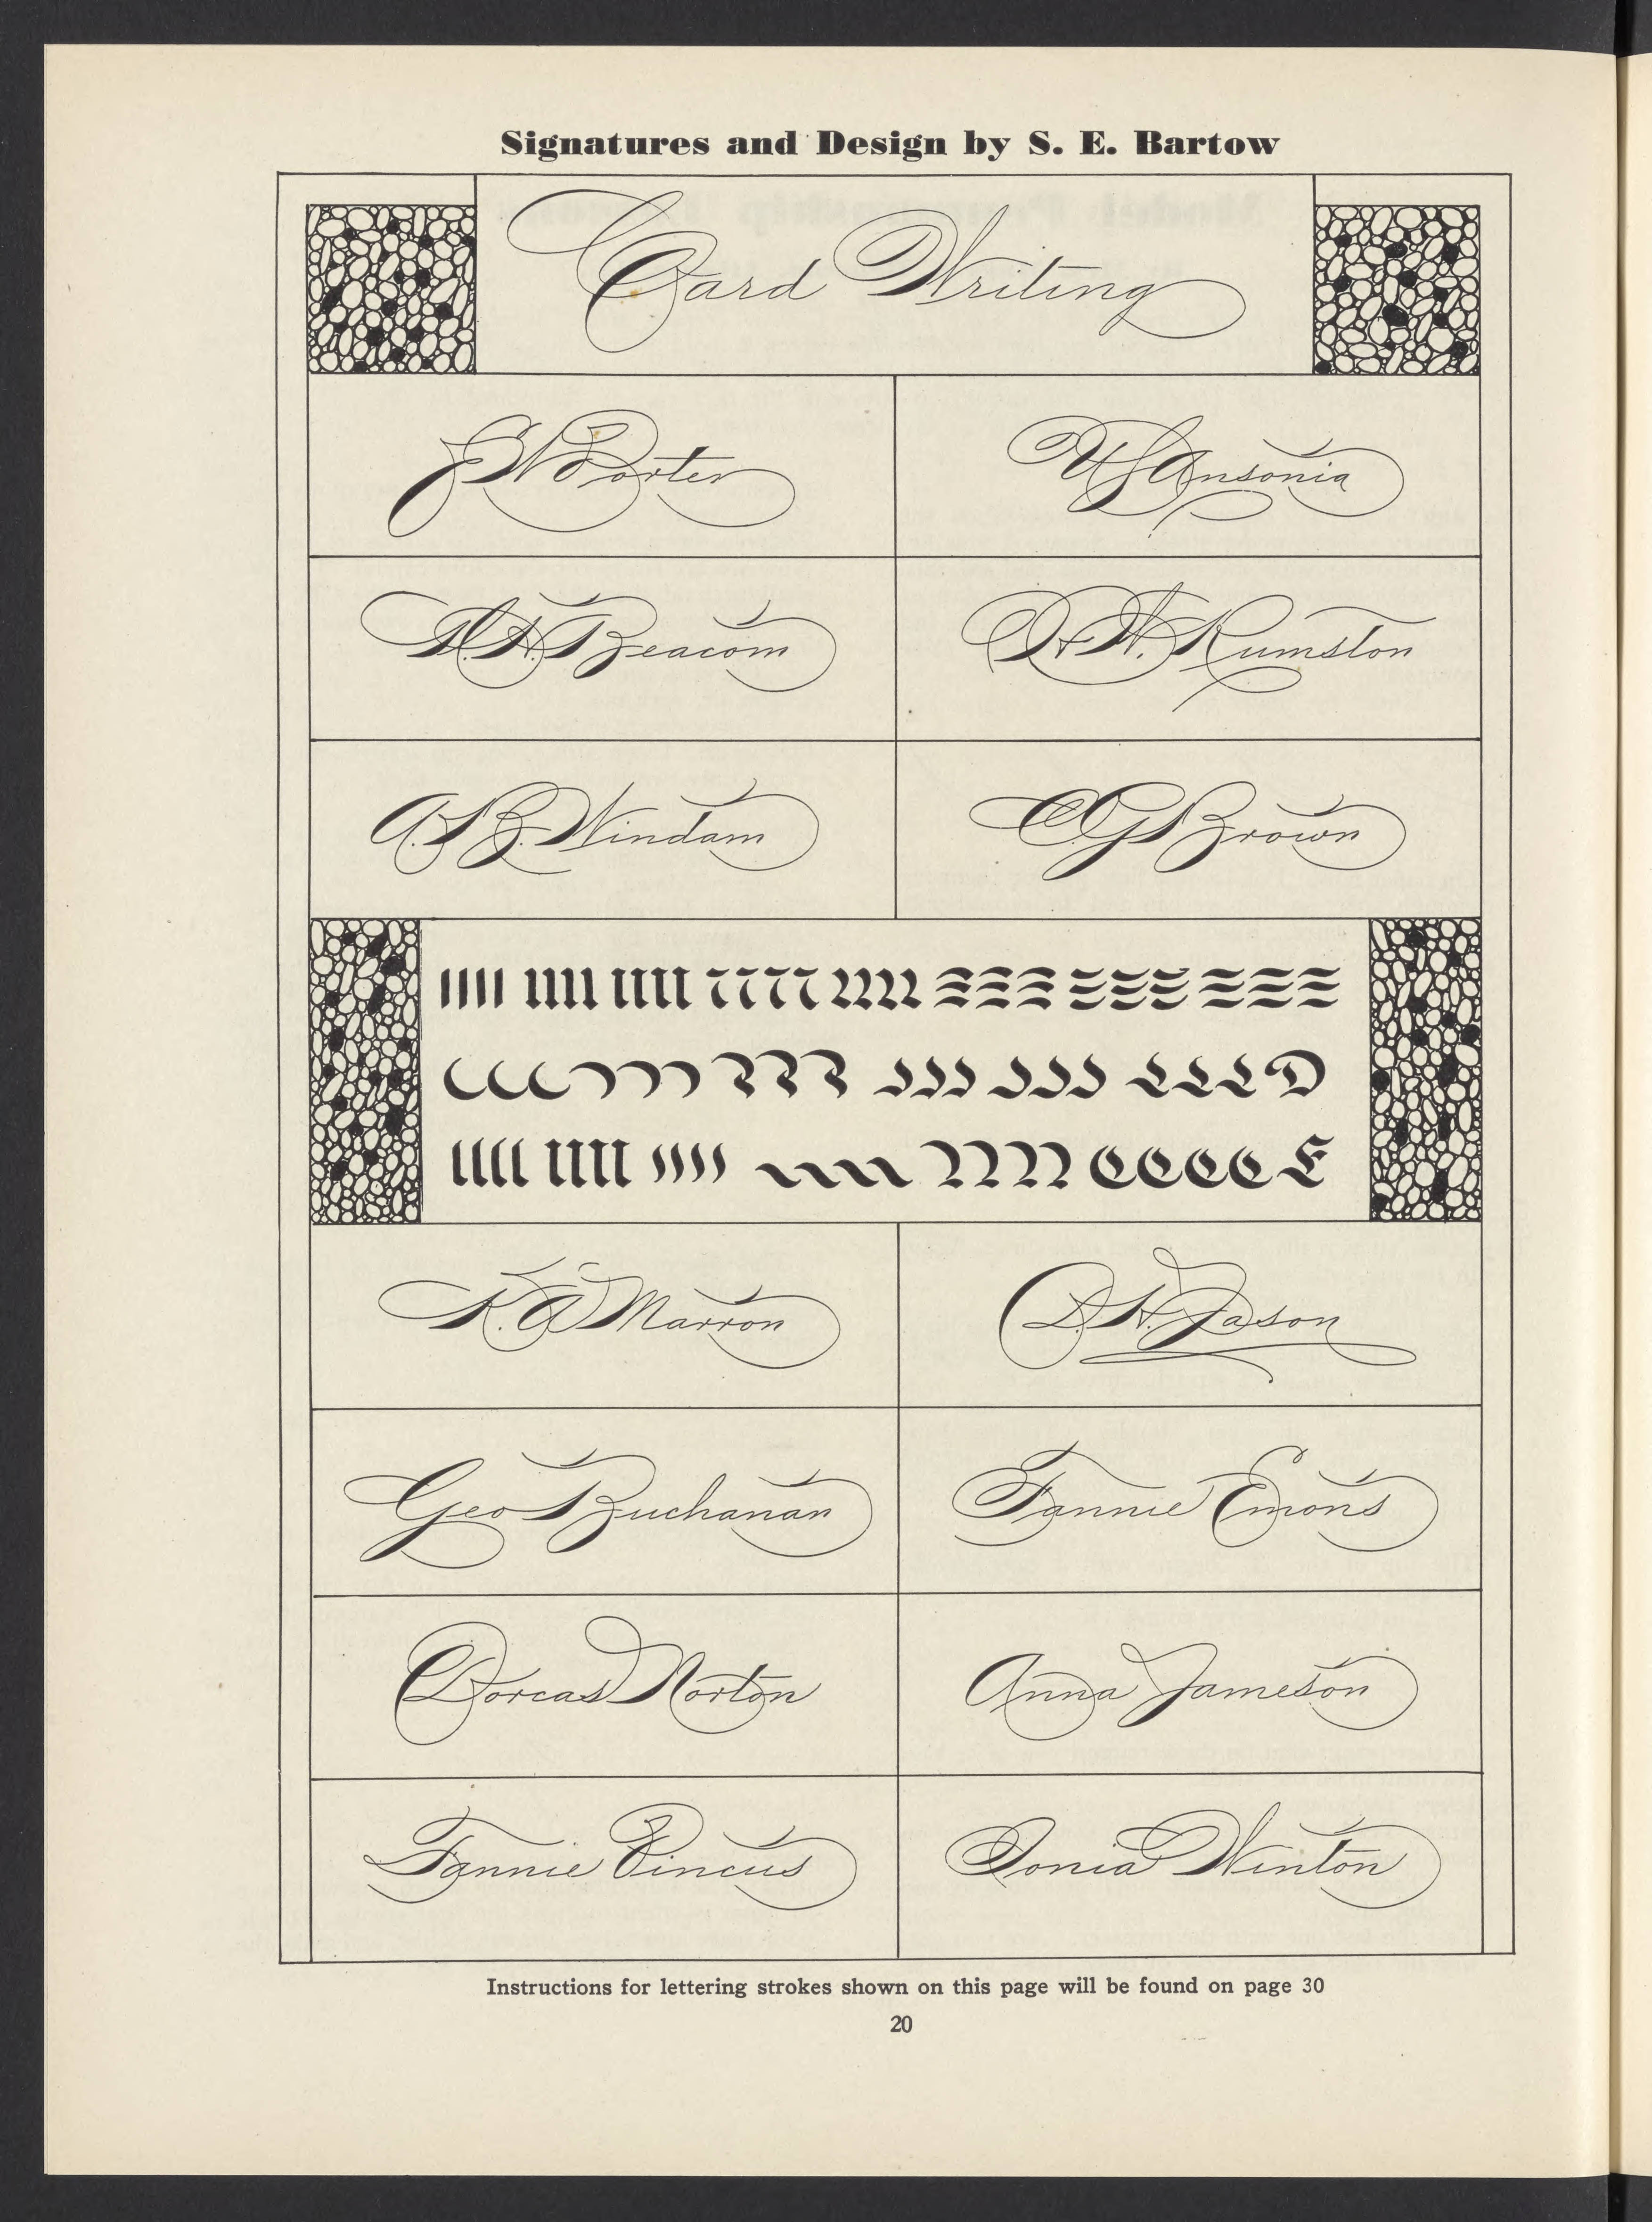 Signatures and Design by S. E. Bartow
Card Writing
W. H. Beacom
H. W. Rumston
A. B. Windam
C. G. Brown
K. A. Marron
D. H. Jason
Geo Buchanan
Fannie Emons
Dorcas Norton
Anna Jameson
Fannie Pincus
Sonia Winton
Instructions for lettering strokes shown on this page will be found on page 30
20